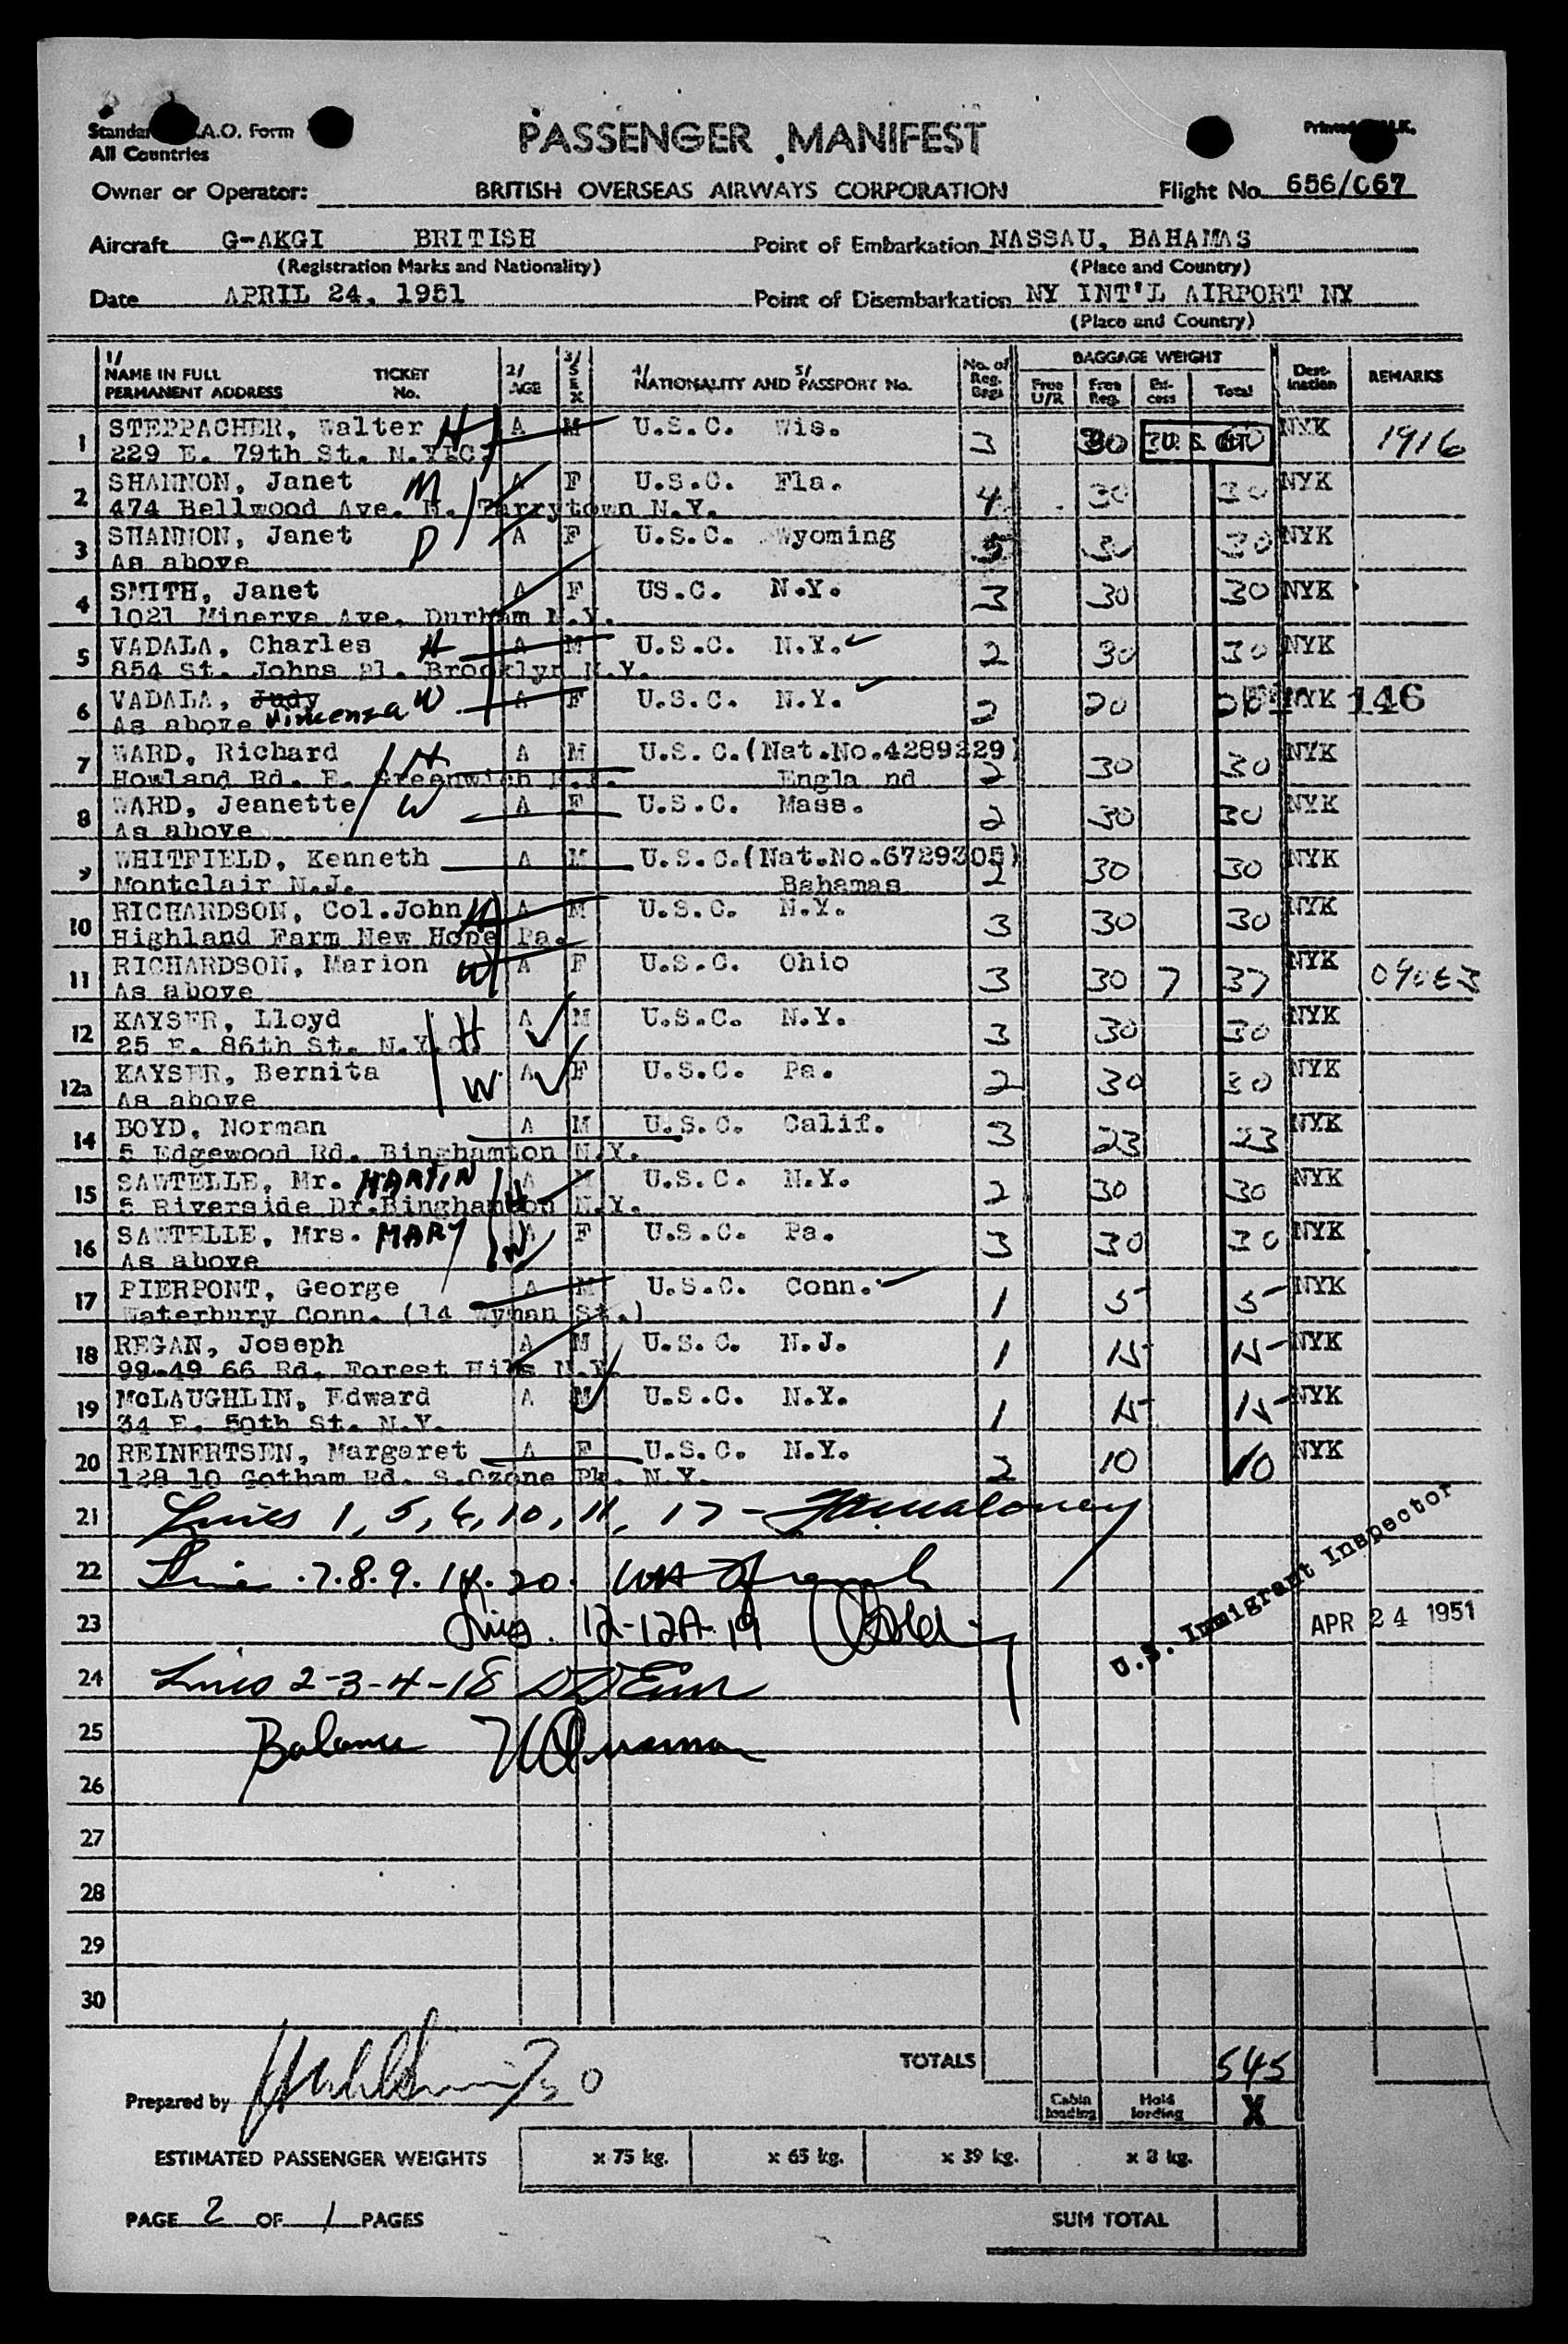 Standar A.O. Form
All Countries
PASSENGER MANIFEST
Printed U.K.
Owner or Operator: BRITISH OVERSEAS AIRWAYS CORPORATION Flight No. 656/067
Aircraft G-AKGI BRITISH Point of Embarkation NASSAU, BAHAMAS
(Registration Marks and Nationality) (Place and Country)
Date APRIL 24, 1951 Point of Disembarkation NY INT'L AIRPORT NY
(Place and Country)
1/ NAME IN FULL PERMANENT ADDRESS TICKET No. 2/ AGE 3/ SEX 4/ NATIONALITY AND 5/ PASSPORT No. No. of Reg. Bags BAGGAGE WEIGHT Free U/R Free Reg. Excess Total Destination REMARKS
1 STEPPACHER, Walter H A M U.S.C. Wis. 3 30 U. S. NYK 1916
229 E. 79th St. N.Y.C.
2 SHANNON, Janet M A F U.S.C. Fla. 4 30 30 NYK
474 Bellwood Ave. N. Tarrytown N.Y.
3 SHANNON, Janet D A F U.S.C. Wyoming 5 30 30 NYK
As above
4 SMITH, Janet A F US.C. N.Y. 3 30 30 NYK
1021 Minerva Ave. Durham N.Y.
5 VADALA, Charles H A M U.S.C. N.Y. 2 30 30 NYK
854 St. Johns Pl. Brooklyn N.Y.
6 VADALA, Judy W A F U.S.C. N.Y. 2 20 20 NYK 146
As above Vincenza
7 WARD, Richard H A M U.S.C.(Nat.No.4289229) 2 30 30 NYK
Howland Rd. E. Greenwich R.I. Engla nd
8 WARD, Jeanette W A F U.S.C. Mass. 2 30 30 NYK
As above
9 WHITFIELD, Kenneth A M U.S.C.(Nat.No.6729305) 2 30 30 NYK
Montclair N.J. Bahamas
10 RICHARDSON, Col.John H A M U.S.C. N.Y. 3 30 30 NYK
Highland Farm New Hope Pa.
11 RICHARDSON, Marion W A F U.S.C. Ohio 3 30 7 37 NYK
As above
12 KAYSER, Lloyd H A M U.S.C. N.Y. 3 30 30 NYK
25 E. 86th St. N.Y.C.
12a KAYSER, Bernita W A F U.S.C. Pa. 2 30 30 NYK
As above
14 BOYD, Norman A M U.S.C. Calif. 3 23 23 NYK
5 Edgewood Rd. Binghamton N.Y.
15 SAWTELLE, Mr. MARTIN H A M U.S.C. N.Y. 2 30 30 NYK
5 Riverside Dr.Binghamton N.Y.
16 SAWTELLE, Mrs. MARY W A F U.S.C. Pa. 3 30 30 NYK
As above
17 PIERPONT, George A M U.S.C. Conn. 1 5 5 NYK
Waterbury Conn. (14 Wyman St.)
18 REGAN, Joseph A M U.S.C. N.J. 1 15 15 NYK
99-49 66 Rd. Forest Hills N.Y.
19 McLAUGHLIN, Edward A M U.S.C. N.Y. 1 15 15 NYK
34 E. 50th St. N.Y.
20 REINERTSEN, Margaret A F U.S.C. N.Y. 2 10 10 NYK
128 10 Gotham Rd. S.Ozone Pk. N.Y.
21 Lines 1, 5, 6, 10, 11, 17 -
22 Line .7.8.9.14.20.
23 Lines. 12-12A-19
U.S. Immigrant Inspector
APR 24 1951
24 Lines 2-3-4-18
25 Balance
26
27
28
29
30
TOTALS 545
Prepared by
Cabin loading Hold loading X
ESTIMATED PASSENGER WEIGHTS x 75 kg. x 65 kg. x 39 kg. x 8 kg.
PAGE 2 OF 1 PAGES SUM TOTAL